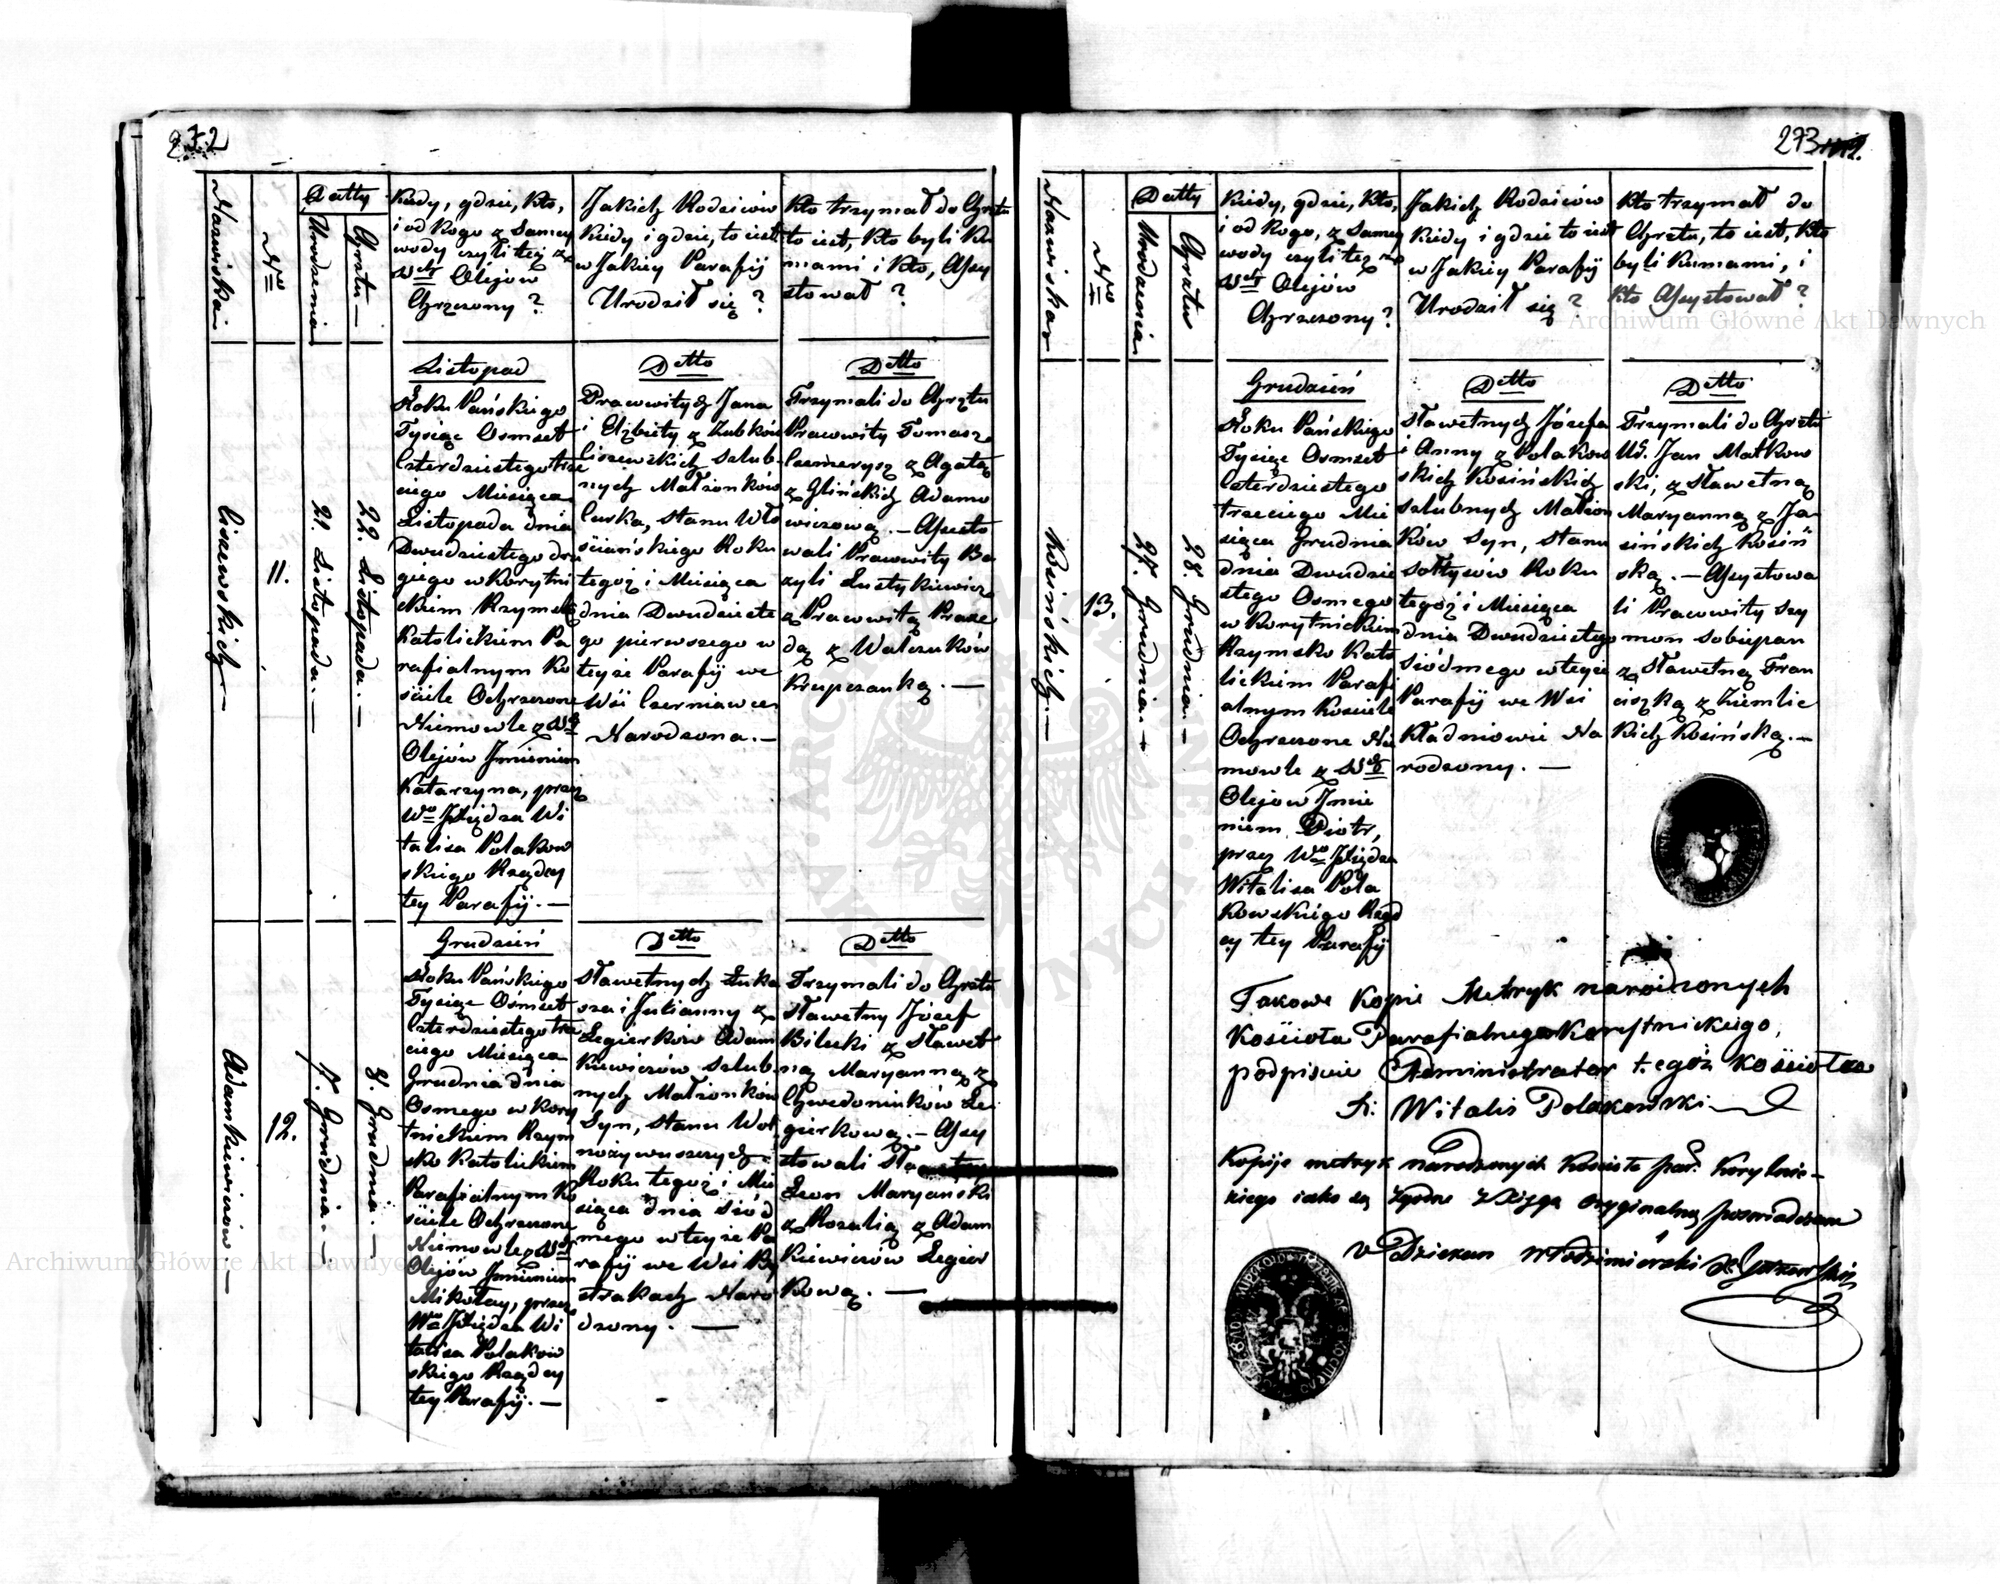 272
Nazwiska
Nro
Datty
Urodzenia
Chrztu
Kiedy, gdzie, Kto,
i od Kogo z Samey
wody czyli tez z
Stych Olejów
Chrzczony?
Jakich Rodziców
Kiedy i gdzie, to iest
w Jakiey Parafij
Urodził się?
Kto trzymał do Chrztu
to iest, Kto byli Ku
mami i Kto, Assy
stował?
Liszewskich
11.
21. Listopada.
22. Listopada.
Listopad
Roku Pańskiego
Tysiąc Osmset
Czterdziestego trze
ciego Miesiąca
Listopada dnia
Dwudziestego dru
giego w Korytni
ckim Rzymsko
Katolickim Pa
rafialnym Ko
ściele Ochrzczone
Niemowle z Stych
Olejów Jmieniem
Katarzyna, przez
Wo Xiędza Wi
talisa Polakow
skiego Rządcy
tey Parafij.
Detto
Pracowitych Jana
i Elżbiety z Zubków
Liszewskich szlub-
nych Małżonków
Curka, stanu Wło
ściańskiego Roku
tegoż i Miesiąca
dnia Dwudzieste
go pierwszego w
teyże Parafij we
Wsi Czerniawce
Narodzona.
Detto
Trzymali do Chrztu
Pracowity Tomasz
z Agatą
z Glińskich Adamo
wiczową. Assysto
wali Pracowity Ba
zyli Lustykiewicz
z Pracowitą Praxe
dą z Walczuków
Krupczanką.
Adamkiewiczów
12.
7. Grudnia.
8. Grudnia.
Grudzień
Roku Pańskiego
Tysiąc Ośmset
Czterdziestego trze
ciego Miesiąca
Grudnia dnia
Osmego w Kory
tnickim Rzym
sko Katolickim
Parafialnym Ko
ściele Ochrzczone
Niemowle z Stych
Olejów Jmieniem
Mikołay, przez
Wo Xiędza Wi
talisa Polakow
skiego Rządcy
tey Parafij.
Detto
Sławetnych Łuka
sza i Julianny z
Legierków Adam
kiewiczów szlub-
nych Małżonków
Syn, stanu Wol
nożywuszczych
Roku tegoż i Mie
siąca dnia siód
mego w teyże Pa
rafij we Wsi By
strakach Naro
dzony.
Detto
Trzymali do Chrztu
Sławetny Józef
Bilecki z Sławet
ną Maryanną z
Chwedoniuków Le
gierkową. Assy
stowali
Leon Maryanski
z Rozalią z Adam
kiewiczów Legier
kową.
273
Nazwiska
Nro
Datty
Urodzenia
Chrztu
Kiedy, gdzie, Kto,
i od Kogo, z Samey
wody czyli tez z
Stych Olejów
Chrzczony?
Jakich Rodziców
Kiedy i gdzie to iest
w Jakiey Parafij
Urodził się?
Kto trzymał do
Chrztu, to iest, Kto
byli Kumami, i
Kto Assystował?
Kosińskich
13.
27. Grudnia.
28. Grudnia.
Grudzień
Roku Pańskiego
Tysiąc Osmset
Czterdziestego
trzeciego Mie
siąca Grudnia
dnia Dwudzie
stego Osmego
w Korytnickim
Rzymsko Kato
lickim Parafi
alnym Kościele
Ochrzczone Nie
mowle z Stych
Olejow Jmie
niem Piotr,
przez Wo Xiędza
Witalisa Pola
kowskiego Rząd
cy tey Parafij
Detto
Sławetnych Józefa
i Anny z Polakow
skich Kosińskich
szlubnych Małżon
ków Syn, stanu
Sołtysów Roku
tegoż i Miesiąca
dnia Dwudziestego
Siódmego w teyże
Parafij we Wsi
Kładniowie Na
rodzony.
Detto
Trzymali do Chrztu
Ur. Jan Małkow
ski, z Sławetną
Maryanną z Ja
sińskich Kosiń
ską. Assystowa
li Pracowity Szy
mon Sobiepan
z Sławetną Fran
ciszką z Ziemlic
kich Kosińską.
Takowe Kopie Metryk narodzonych
Kościoła Parafialnego Korytnickiego,
podpisuie Administrator tegóż Kościoła
X: Witalis Polakowski
Kopije metryk narodzonych Kościoła par. Korytnic-
kiego iako są zgodne z Xięgą oryginalną poswiadczam
V Dziekan Włodzimierski
Archiwum Główne Akt Dawnych
Archiwum Główne Akt Dawnych